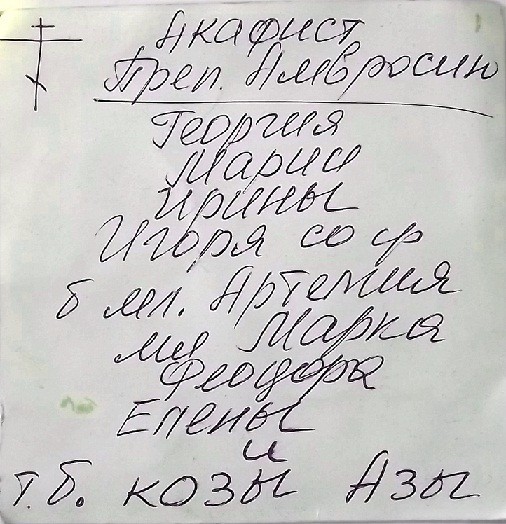 Акафист
Преп. Амвросию
Георгия
Марии
Ирины
Игоря со ср
б мл. Артемия
мл Марка
Феодора
Елены
и
т.б. козы Азы